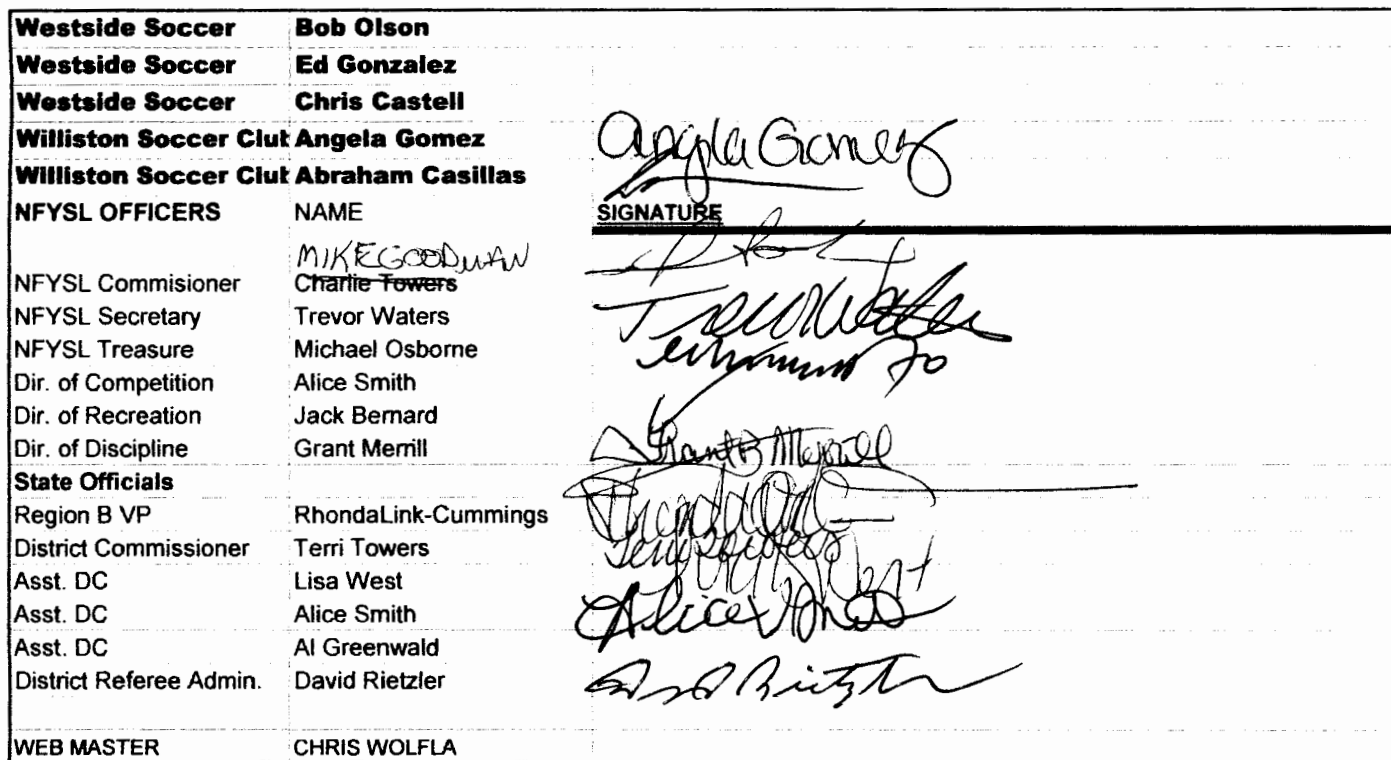 Westside Soccer Bob Olson
Westside Soccer Ed Gonzalez
Westside Soccer Chris Castell
Williston Soccer Clut Angela Gomez Angela Gomez
Williston Soccer Clut Abraham Casillas
NFYSL OFFICERS NAME SIGNATURE
MIKE GOODMAN
NFYSL Commisioner Charlie Towers
NFYSL Secretary Trevor Waters Trevor Waters
NFYSL Treasure Michael Osborne
Dir. of Competition Alice Smith
Dir. of Recreation Jack Bernard
Dir. of Discipline Grant Merrill Grant B Merrill
State Officials
Region B VP RhondaLink-Cummings
District Commissioner Terri Towers Terri Towers
Asst. DC Lisa West West
Asst. DC Alice Smith Alice Smith
Asst. DC Al Greenwald
District Referee Admin. David Rietzler David Rietzler
WEB MASTER CHRIS WOLFLA